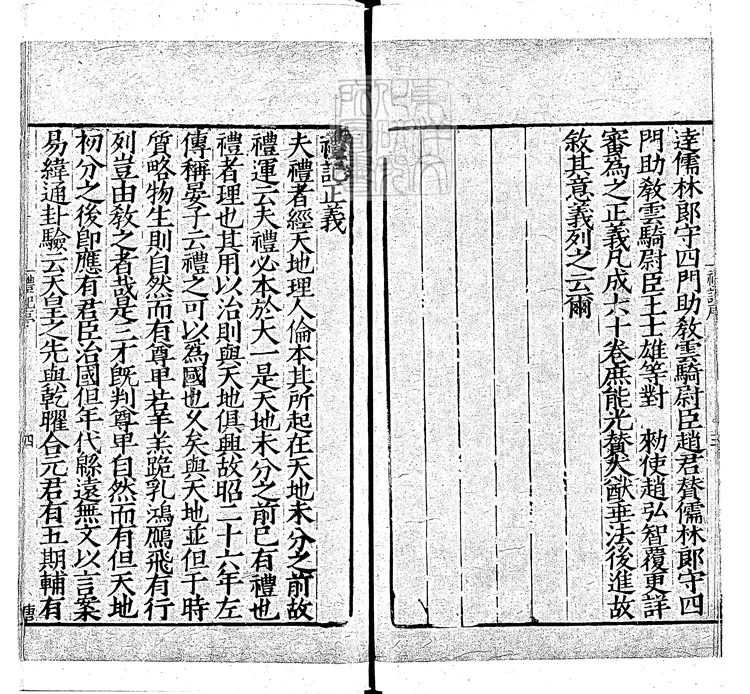 達儒林郎守四門助敎雲騎尉臣趙君賛儒林郎守四
門助敎雲騎尉臣王士雄等對　勑使趙弘智覆更詳
審爲之正義凡成六十卷庶能光賛大猷垂法後進故
敘其意義列之云爾
禮記正義
夫禮者經天地理人倫本其所起在天地未分之前故
禮運云夫禮必本於大一是天地未分之前已有禮也
禮者理也其用以治則與天地俱興故昭二十六年左
傳稱晏子云禮之可以爲國也乆矣與天地並但于時
質略物生則自然而有尊卑若羊羔跪乳鴻鴈飛有行
列豈由敎之者哉是三才旣判尊卑自然而有但天地
初分之後即應有君臣治國但年代緜遠無文以言案
易緯通卦驗云天皇之先與乾曜合元君有五期輔有
禮記序
四